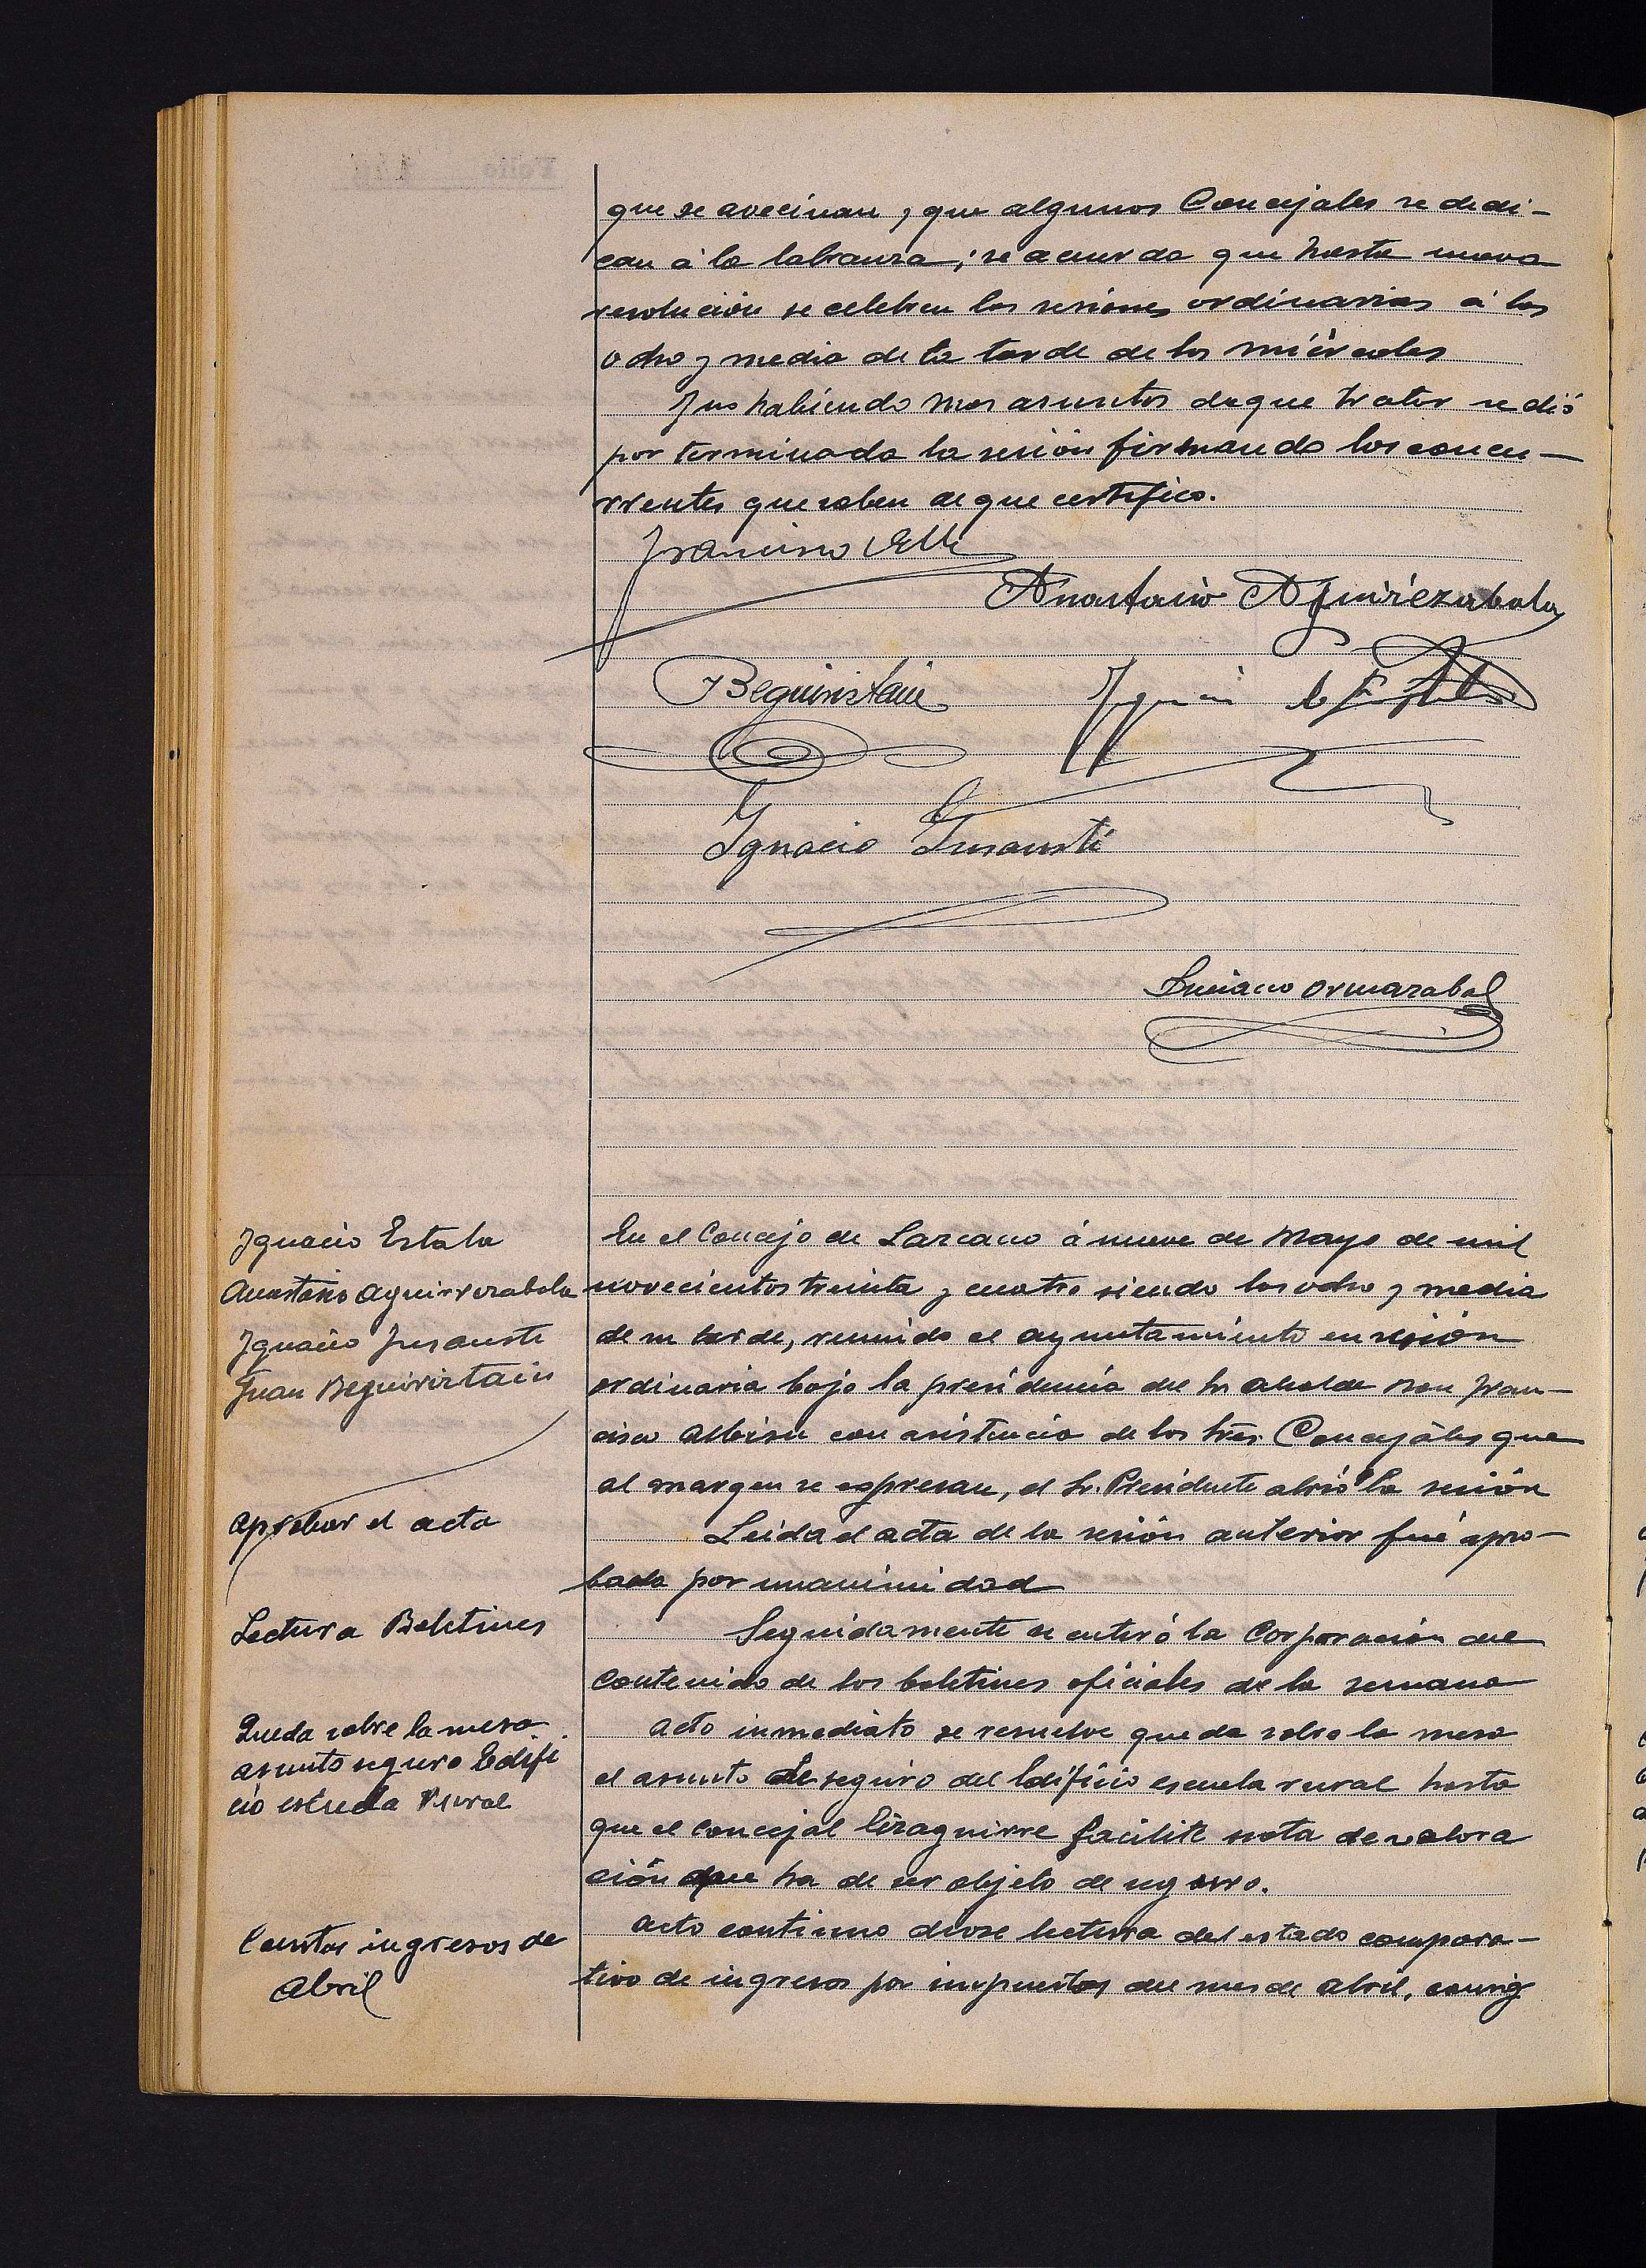 que se avecinan, que algunos Concejales se dedi-
can á la labranza; se acuerda que hasta nueva
resolución se celebren las sesiones ordinarias á las
ocho y media de la tarde de los miércoles
Y no habiendo mas asuntos de que tratar se dió
por terminada la sesión firmando los concu-
rrentes que saben de que certifico.
Francisco Albi
Anastasio Aguirrezabala
Beguiristain
Ignacio
Ignacio Insausti
Luciano Ormazabal
Ignacio Estala
Anastasio Aguirrezabala
Ignacio Insausti
Juan Beguiristain
En el Concejo de Lazcano á nueve de Mayo de mil
novecientos treinta y cuatro siendo las ocho y media
de su tarde, reunido el ayuntamiento en sesión
ordinaria bajo la presidencia del Sr. Alcalde Don Fran-
cisco Albisu con asistencia de los Sres. Concejáles que
al margen se expresan, el Sr. Presidente abrió la sesión
Aprobar el acta
Leida el acta de la sesión anterior fué apro-
bada por unanimidad
Lectura Boletines
Seguidamente se enteró la Corporación del
contenido de los boletines oficiales de la semana
Queda sobre la mesa
asunto seguro Edifi
cio escuela Rural
Acto inmediato se resuelve queda sobre la mesa
el asunto de seguro del Edificio escuela rural hasta
que el concejal Eizaguirre facilite nota de valora
ción que ha de ser objeto de seguro.
Cuentas ingresos de
Abril
Acto continuo diose lectura del estado compara-
tivo de ingresos por impuestos del mes de Abril, consig